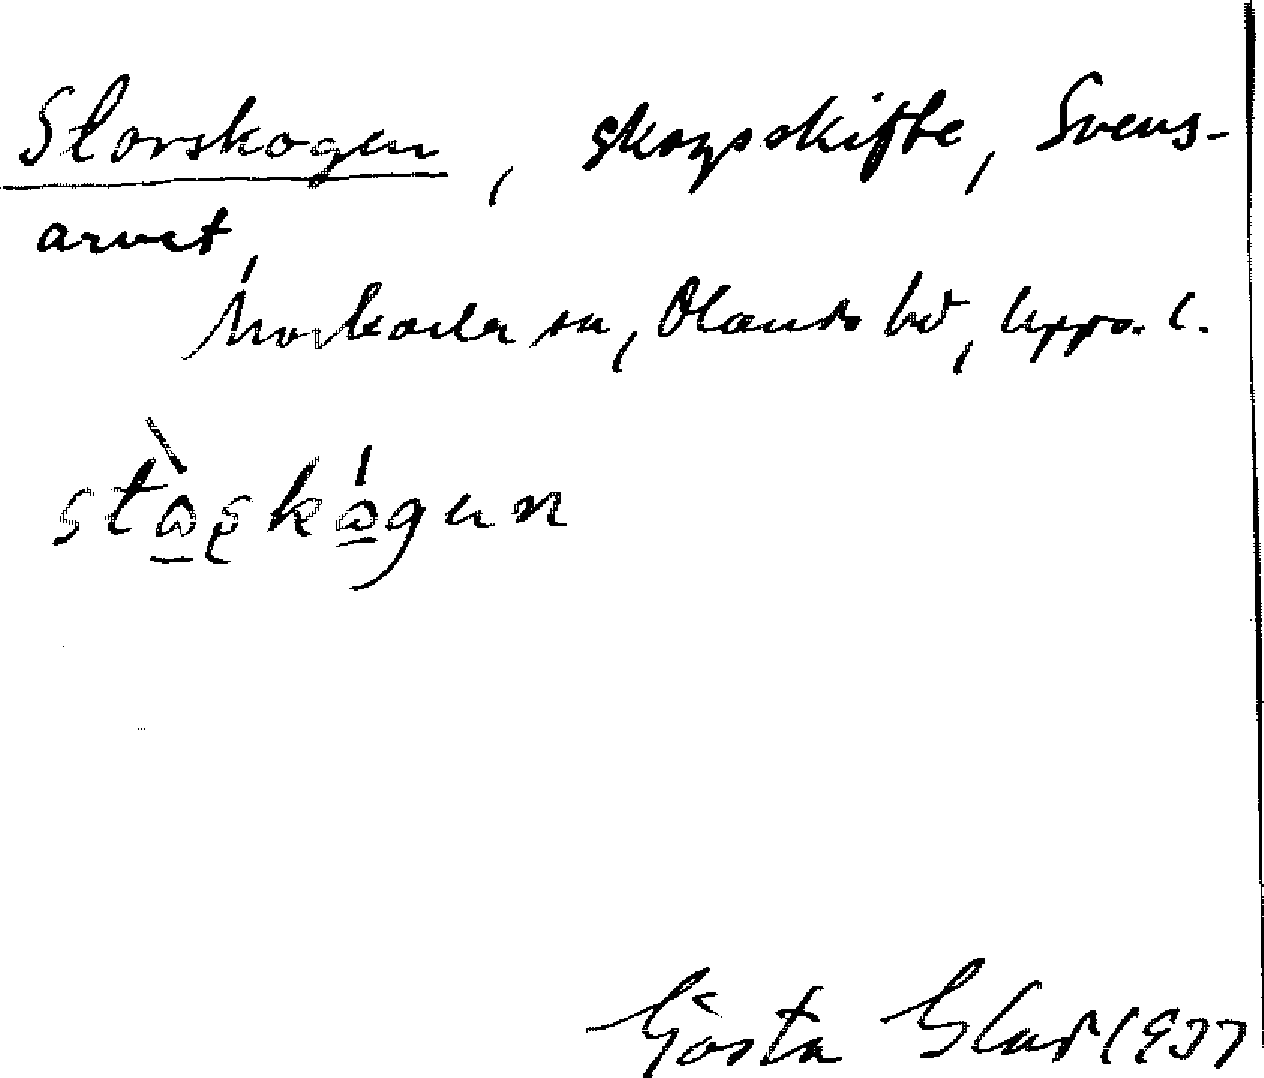 Storskogen, skogsskifte, Svens-
arvet,
Morkarla sn, Olands hd, Upps. l.
stɷ̀ʂkɷ́gun
Gösta Glad 1937